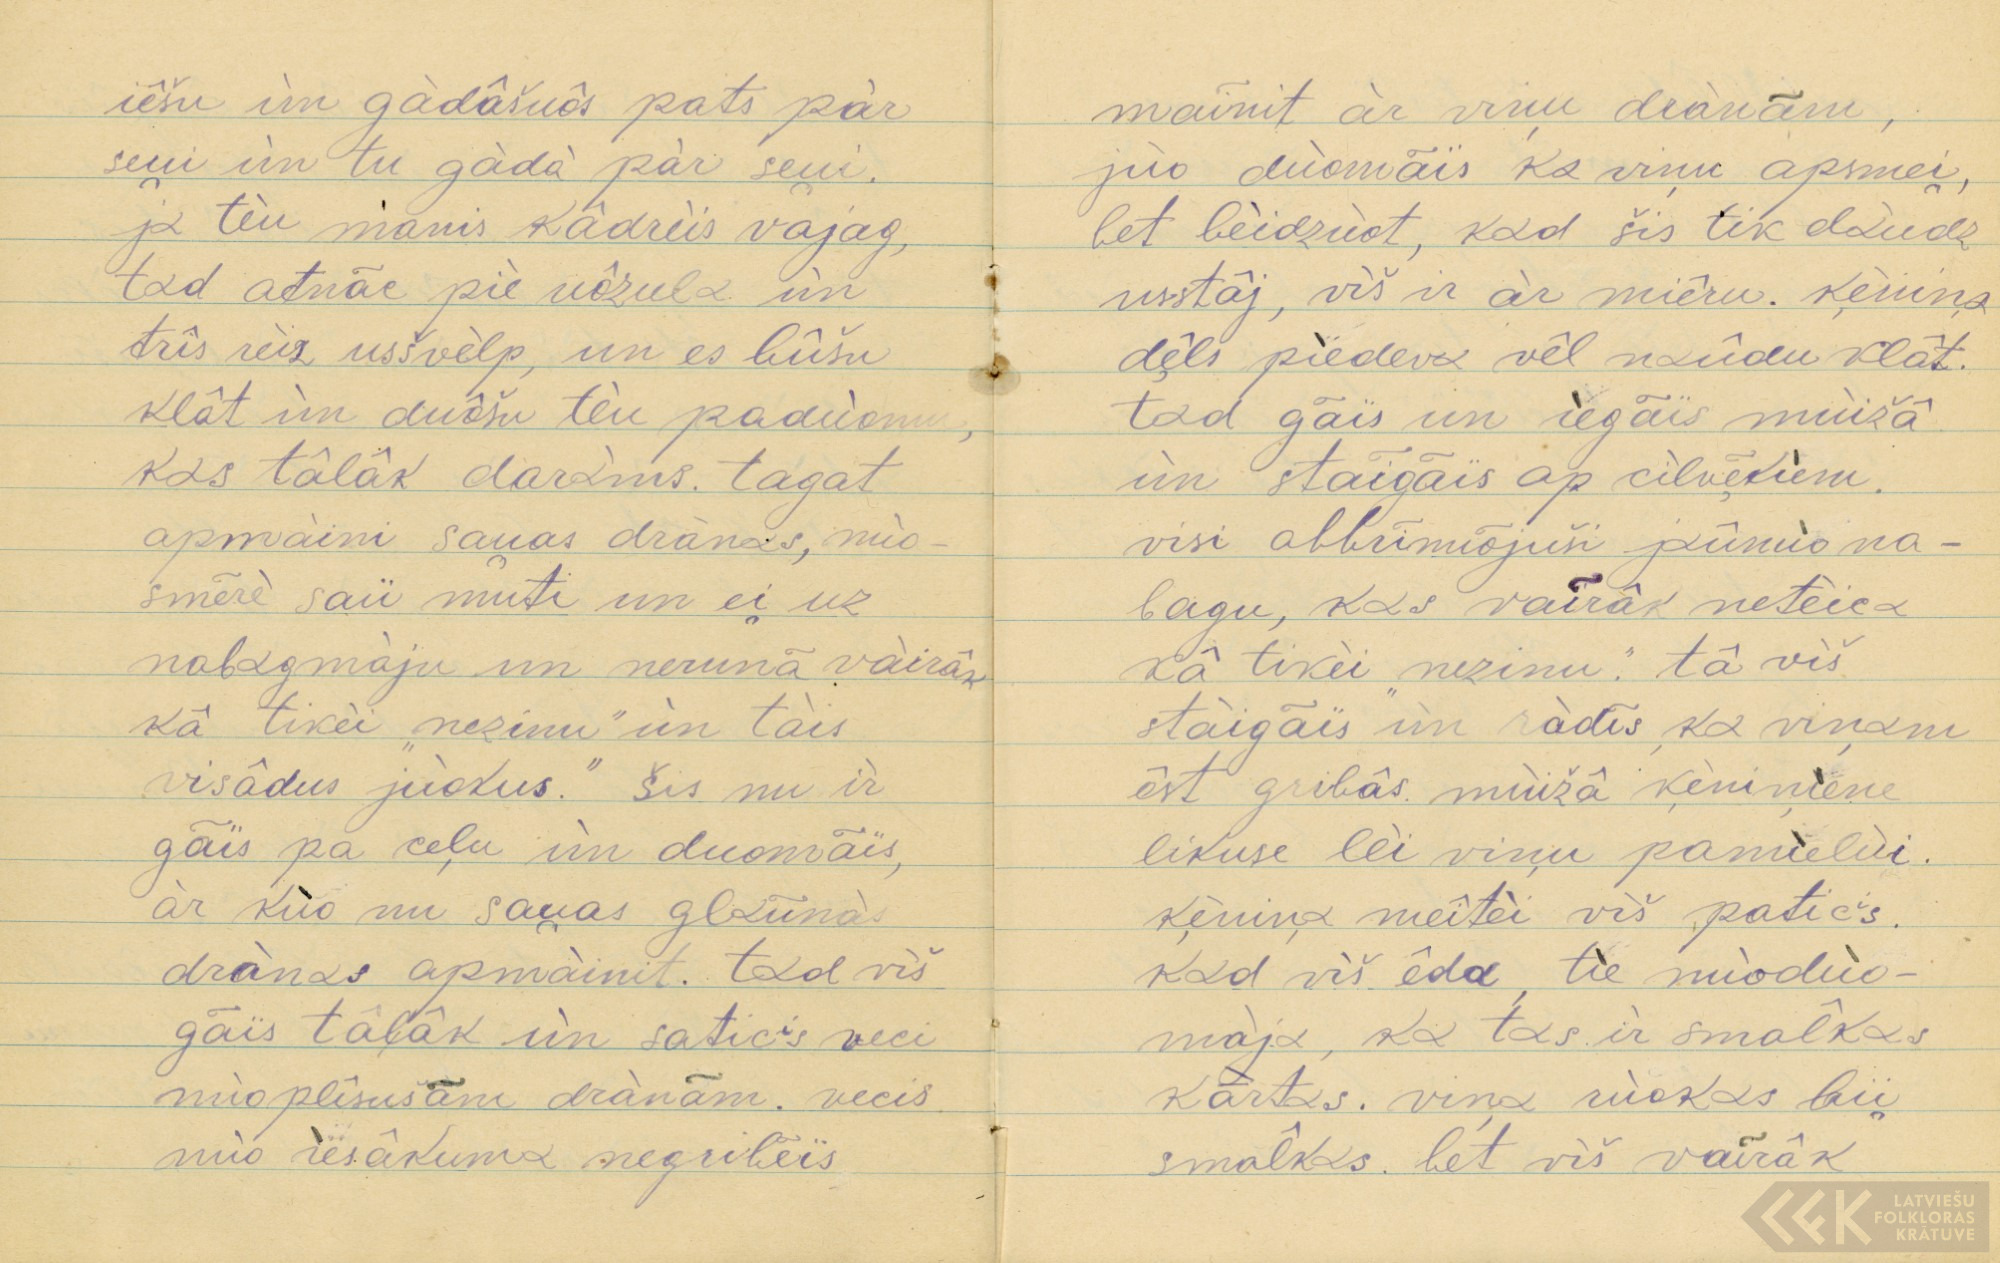 iêšu ùn gàdâšuôs pats pàr
seu̯i ùn tu gàdà pàr seu̯i.
jα tèu manis kâdrèis vajag,
tαd atnāc pìe uôzulα ùn
trîs rèiz usšvèlp, un es bûšu
klât ùn duôšu tèu padùomu,
kαs tâlâk darαms. tagat
apmàini sau̯as drànαs, nùo-
smērè saũ muti un ei̯ uz
nabαgmàju un nerunā vàirâk
kâ tikèi „nezinu" ùn tàis
visâdus jùokus." šis nu ìr
gāĩs pa ceļu ùn duomāĩs,
àr kùo nu sau̯as glαũnàs
drànαs apmàinit. tαd vìš
gāĩs tâlâk ùn saticis veci
nùoplîsušām drànām. vecis
nùo ìesâkumα negribēĩs
mainit àr viņu drànām,
jùo dùomāĩs kα viņu apsmei̯,
bet bèidzùot, kαd šis tik dαudz
usstâj, vìš ir àr miêru. ķèniņα
dêls pìedevα vêl nαûdu klât.
tαd gāĩs un ìegāĩs mùižâ
ùn staĩgāĩs ap cìlvẽkìem.
visi abbrīnuôjuši jαũnùo na-
bagu, kαs vaĩrâk netèicα
kâ tikèi „nezinu". tâ vìš
stàigāĩs ùn ràdīs, kα viņαm
êst gribâs. mùižâ ķèniņìene
likuse lèi viņu pamìelùi.
ķèniņα meîtèi vìš paticis.
kαd vìš êdα, tìe nùodùo-
màjα, kα tαs ìr smalkαs
kārtαs. viņα rùokαs bii̯
smalkαs. bet vìš vaĩrâk
LATVIEŠU
FOLKLORAS
KRĀTUVE